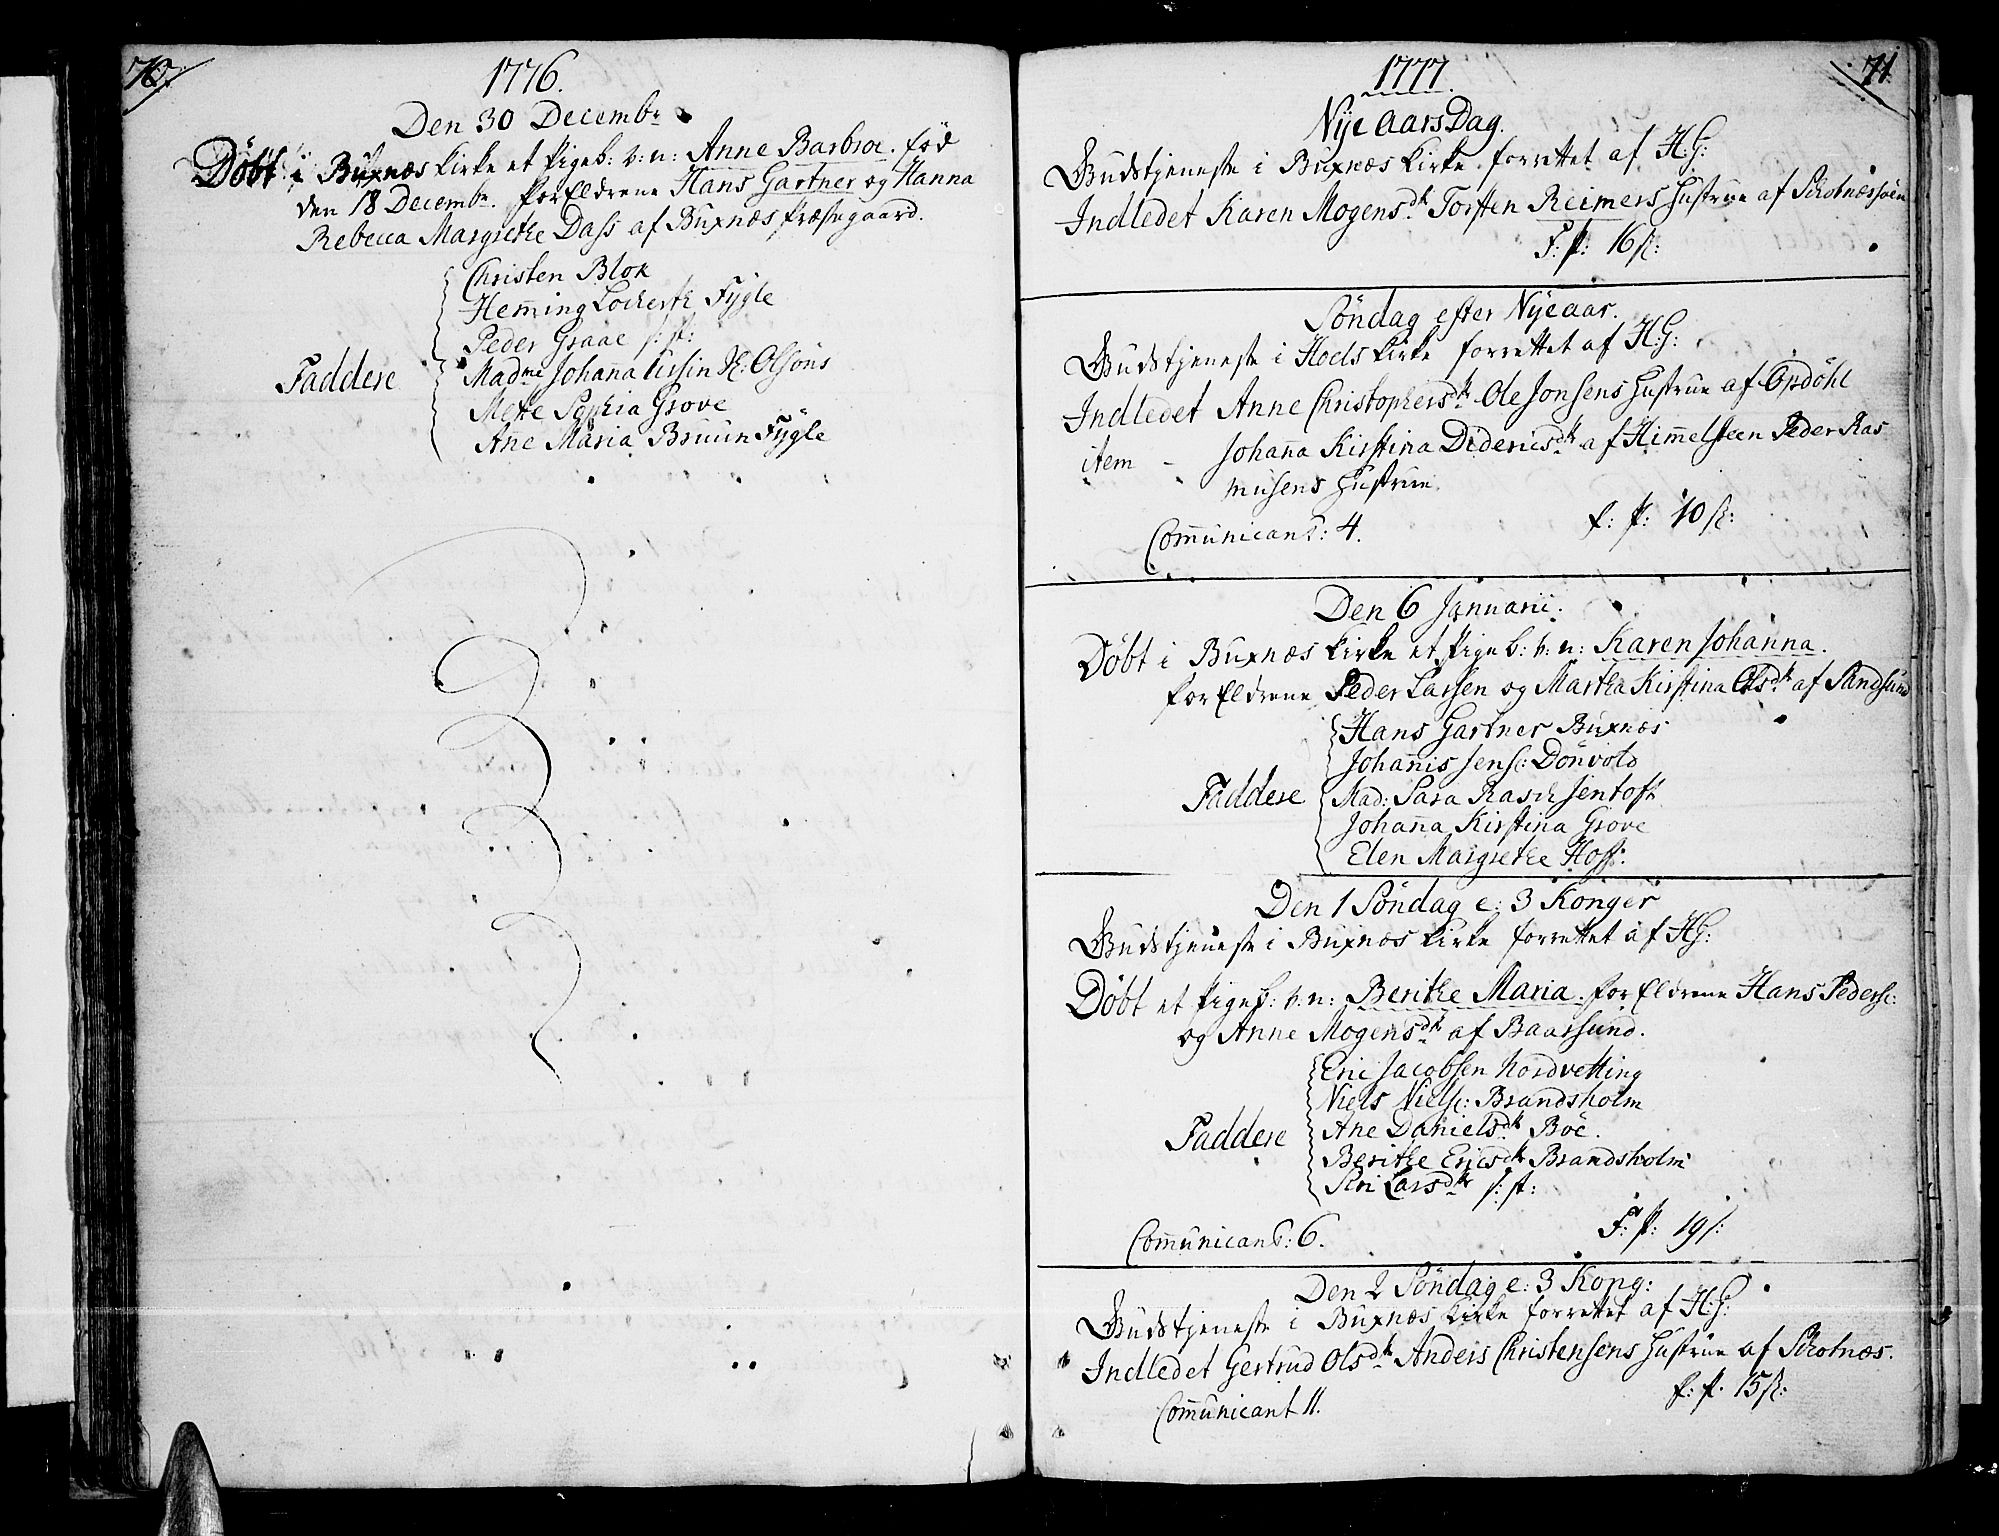 70.
1776.
Den 30 Decembr
Döbt i Buxnæs Kirke et Pigeb: v: n: Anne Barbroe. föd
den 18 Decembr. Forældrene Hans Gartner og Hanna
Rebecca Margrethe Dass af Buxnæs Præstegaard.
Faddere
Christen Blok
Hem̄ing Lockertk Fygle
Peder Graae s: st:
Madme Johan̄a Ursin H: Olsöns
Mette Sophia Grove
Ane Maria Bruun Fygle
71
1777.
Nye aars Dag.
Gudstjeneste i Buxnæs Kirke forrettet af H: G:
Indledet Karen Mogensdtr Torsten Reimers Hustrue af Schotnæsöen
F: p: 16 s:
Söndag efter Nyeaar.
Gudstjeneste i Hoels Kirke forrettet af H: G:
Indledet Anne Christophersdtr Ole Jonsens Hustrue af Opdöhl
item - Johan̄a Kirstina Didericsdtr af Him̄elsteen Peder Ras
musens Hustrue.
Com̄unicant: 4.
F: p: 10 s:
Den 6 Januarii.
Döbt i Buxnæs Kirke et Pigeb: v: n: Karen Johanna.
Forældrene Peder Larsen og Martha Kirstina Olsdtr af Sandsund
Faddere
Hans Gartner Buxnæs
Johan̄is Jens: Dönvold
Mad: Sara Rasch Jentoft
Johan̄a Kirstina Grove
Elen Margrethe Hoff:
Den 1 Söndag e: 3 Konger
Gudstjeneste i Buxnæs Kirke forrettet af H G:
Döbt et Pigeb: v: n: Berithe Maria. Forældrene Hans Peders:
og Anne Mogensdtr af Baarsund.
Faddere
Eric Jacobsen Nordvetting
Niels Niels: Brandsholm
Ane Danielsdtr Böe.
Berithe Ericsdtr Brandsholm
Siri Larsdtr s: st:
Com̄unicant: 6.
F: p: 19 s:
Den 2 Söndag e: 3 Kong:
Gudstjeneste i Buxnæs Kirke forrettet af H: G:
Indledet Gertrud Olsdtr Anders Christensens Hustrue af Schotnæs.
F: p. 15 s:
Com̄unicant 11.